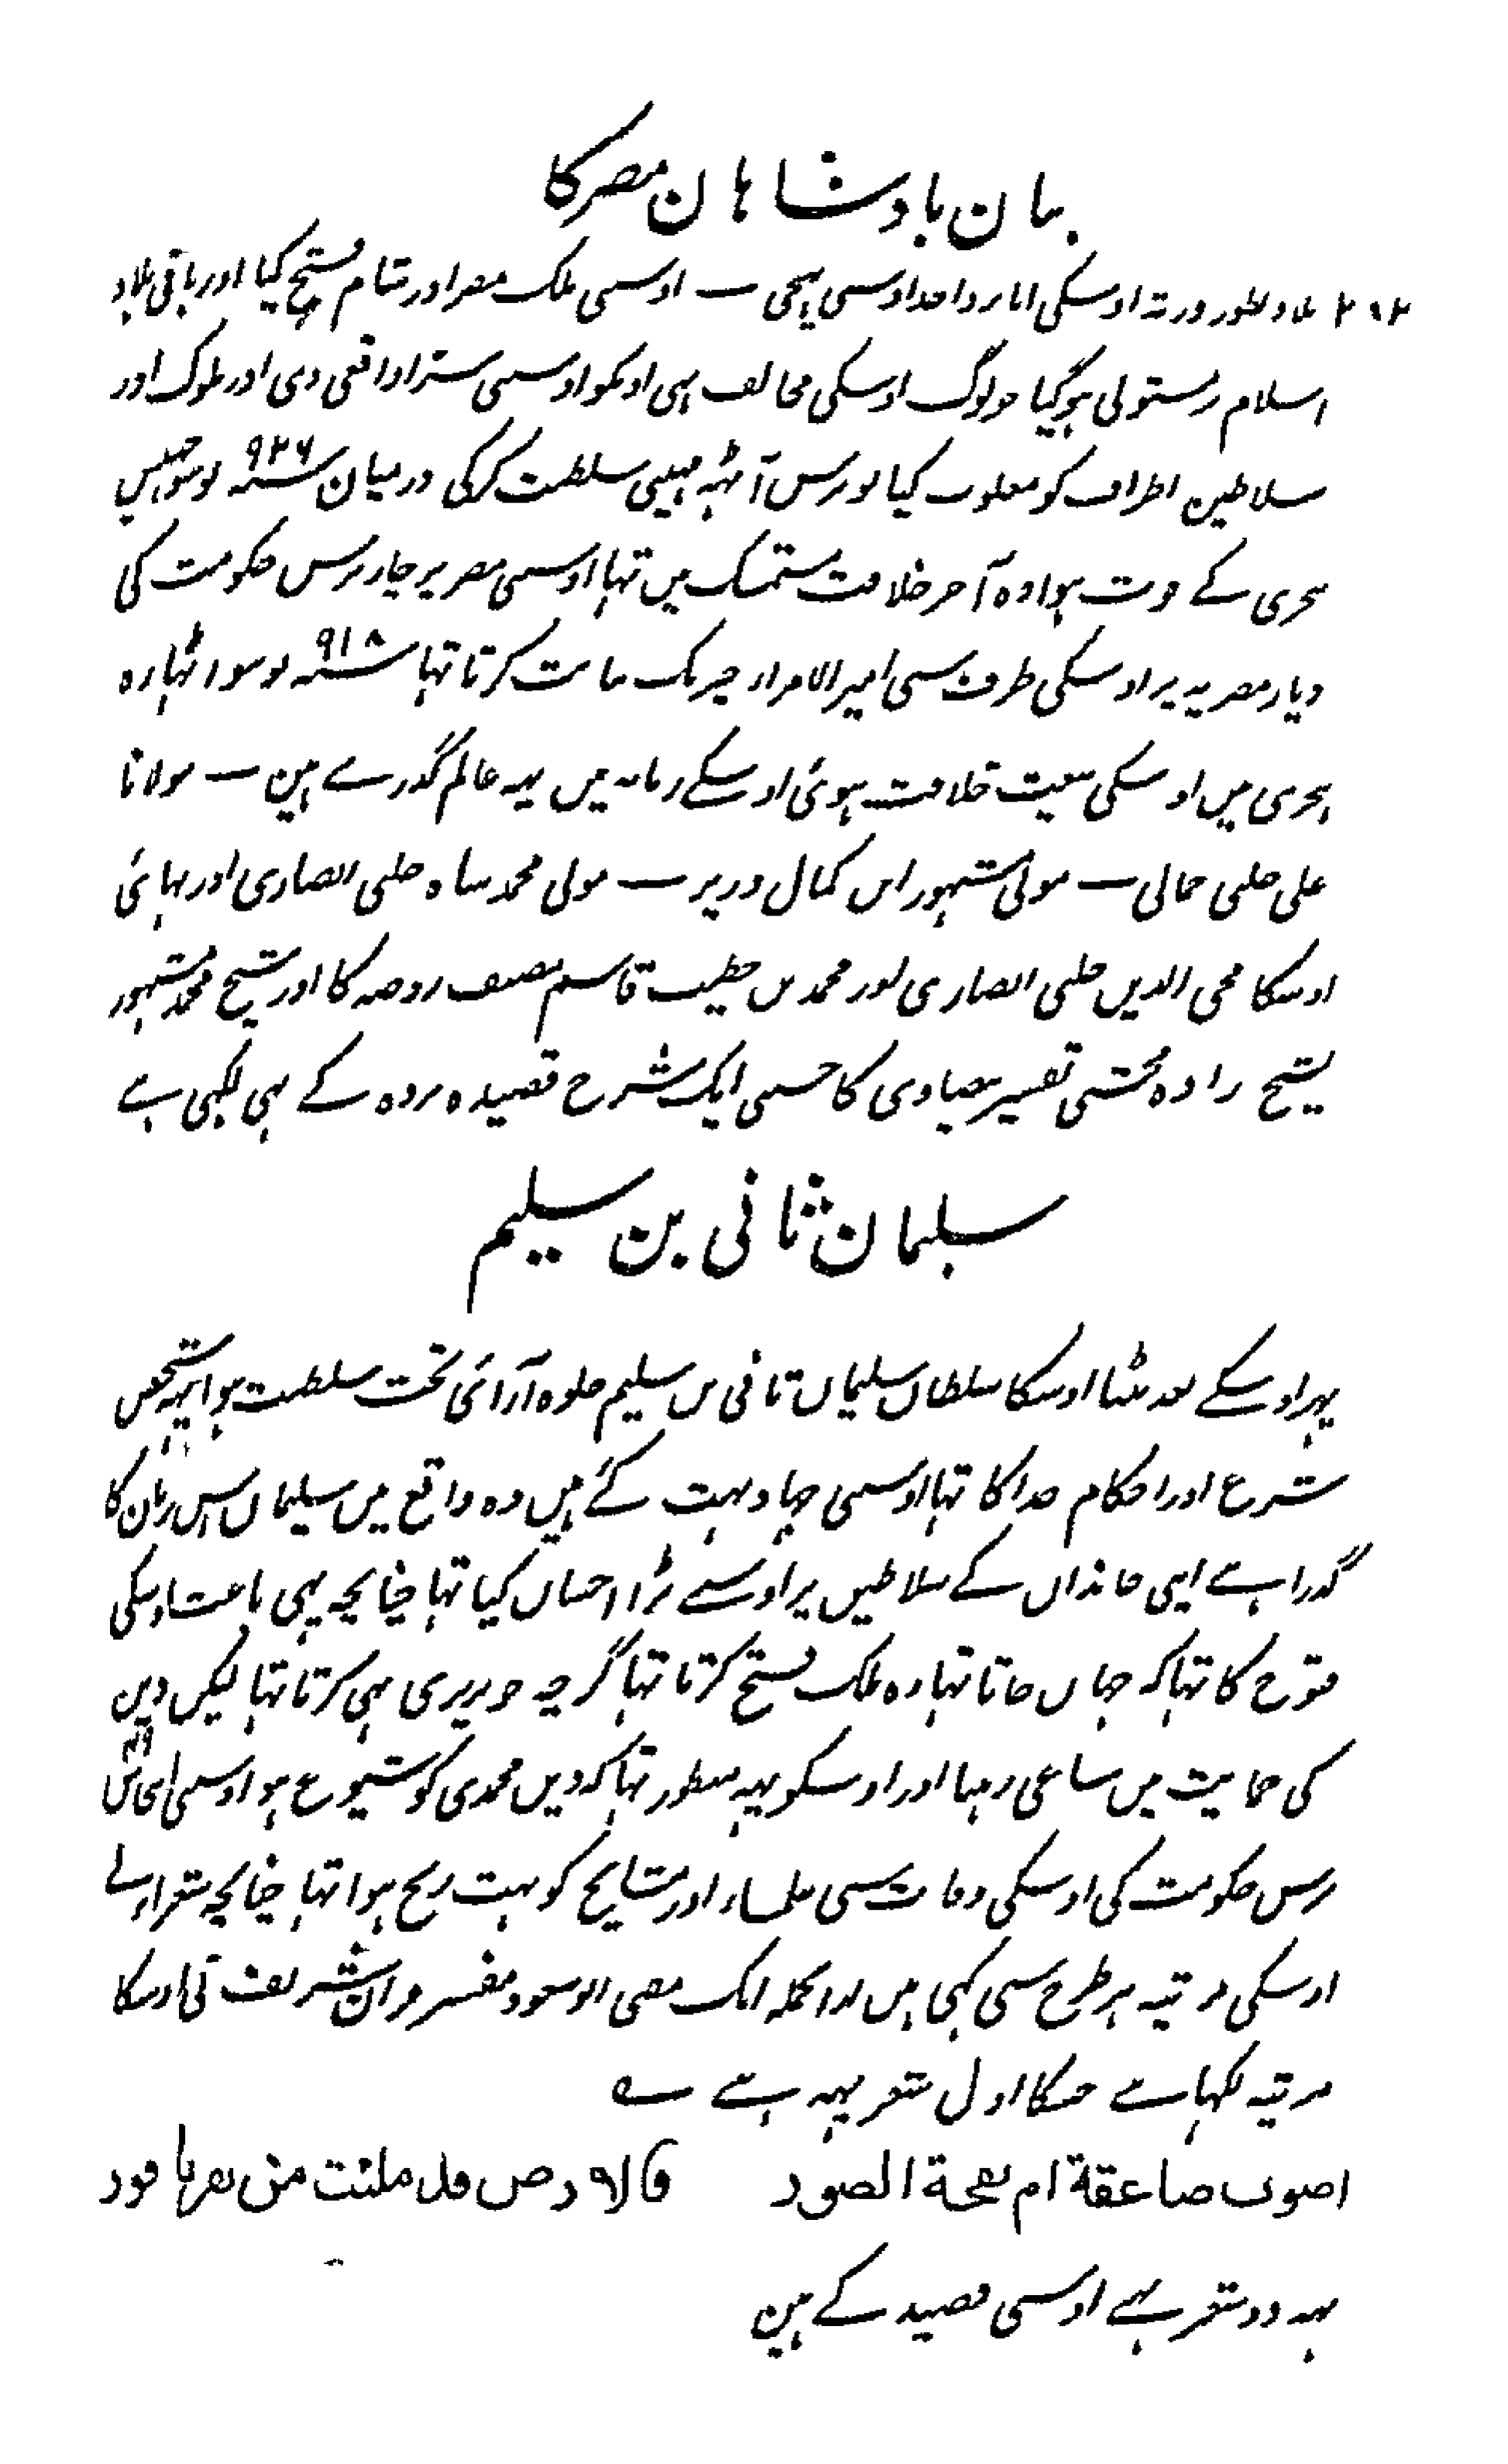 بیان بادشاہان مصر کا
۲۰۲ بلاد بطور ورثہ اوسکی ابا و اجداد سی پہنچی ۔ اوسی ملک مصر اور شام فتح کیا اور باقی بلاد
اسلام پر مستولی ہوگیا جو لوگ اوسکی مخالف تہی اونکو اوسی سزا واقعی دی اور ملوک اور
سلاطین اطراف کو مغلوب کیا نو برس آٹہہ مہینی سلطنت کرکی درمیان سنہ ۹۲۶ نو سو چہبیس
ہجری کے فوت ہوا وہ آخر خلافت مستمسک میں تہا اوسی مصر پر چار برس حکومت کی
دیار مصریہ پر اوسکی طرف سی امیر الامراء چیر بک نیابت کرتا تہا سنہ ۹۱۸ نو سو اٹہارہ
ہجری میں اوسکی بیعت خلافت ہوئی اوسکے زمانہ میں یہہ عالم گذرے ہین ۔ مولانا
علی چلپی جمالی ۔ مولی مشہور ابن کمال وزیر ۔ مولی محمد شاہ چلپی انصاری اور بہائی
اوسکا محی الدین چلپی انصاری اور محمد بن خطیب قاسم مصنف روضہ کا اور شیخ محمد مشہور
بشیخ زادہ محشی تفسیر بیضاوی کا جسی ایک شرح قصیدہ بردہ کے بہی لکہی ہے
سلیمان ثانی بن سلیم
پہر اوسکے بعد بیٹا اوسکا سلطان سلیمان ثانی بن سلیم جلوہ آرائی تخت سلطنت ہوا یہہ شخص
شرع اور احکام خدا کا تہا اوسی جہاد بہت کئے ہیں وہ واقع میں سلیمان اس زمان کا
گذرا ہے اپنی خاندان کے سلاطین پر اوسے بڑا احسان کیا تہا چنانچہ یہی باعث اوسکی
فتوح کا تہا کہ جہاں جاتا تہا وہ ملک فتح کرتا تہا گرچہ خونریزی بہی کرتا تہا لیکن دین
کی حمایت میں ساعی رہتا اور اوسکو یہہ منظور تہا کہ دین محمدی کو شیوع ہو اوسی
برس حکومت کی اوسکی وفات سی علماء اور مشایخ کو بہت رنج ہوا تہا چنانچہ شعراء نے
اوسکی مرثیہ ہر طرح سی کہی ہیں ازانجملہ ایک مفتی ابو سعود مفسر قرآن شریف نی اوسکا
مرثیہ لکہا ہے جسکا اول شعر یہہ ہے ۔
اصوت صاعقة ام نفحة الصور فالارض قد ملئت من نقر ناقور
یہہ دو شعر بہے اوسی قصیدے کے ہین